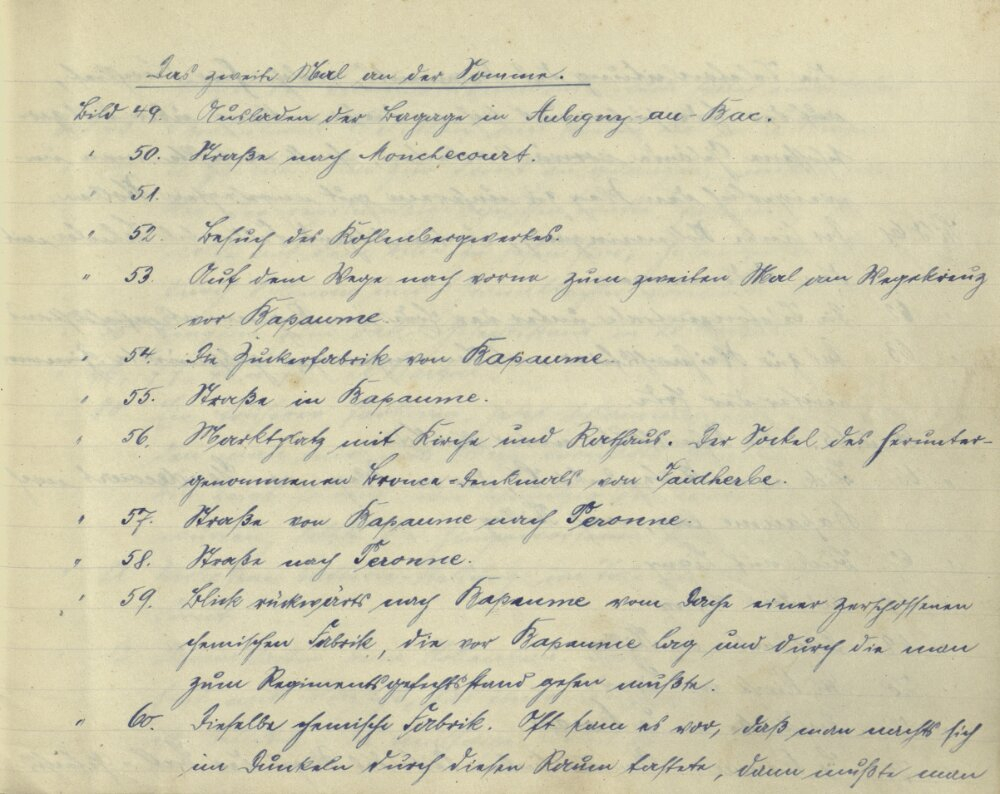 Das zweite Mal an der Somme.
Bild 49. Ausladen der Bagage in Aubigny-au-Bac.
" 50. Straße nach Monchecourt.
51.
" 52. Besuch des Kohlenbergwerkes.
" 53. Auf dem Wege nach vorne zum zweiten Mal am Wegekreuz
vor Bapaume.
" 54. Die Zuckerfabrik von Bapaume
" 55. Straße in Bapaume.
" 56. Marktplatz mit Kirche und Rathaus. Der Sockel des herunter-
genommenen Bronce-Denkmals von Faidherbe.
" 57. Straße von Bapaume nach Peronne.
" 58. Straße nach Peronne.
" 59. Blick rückwärts nach Bapaume vom Dache einer zerschossenen
chemischen Fabrik, die vor Bapaume lag und durch die man
zum Regimentsgefechtsstand gehen mußte.
" 60. Dieselbe chemische Fabrik. Oft kam es vor, daß man nachts sich
im Dunkeln durch diesen Raum tastete, dann mußte man